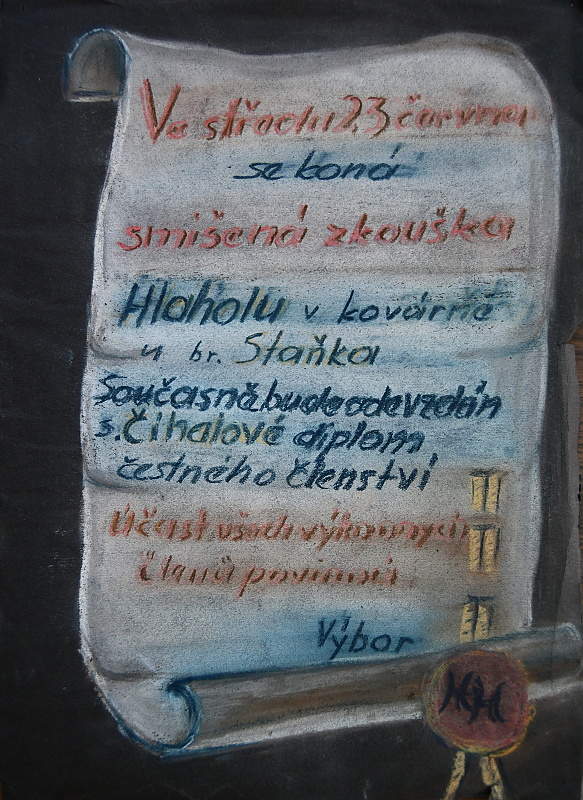 Ve středu 23 června
se koná
smíšená zkouška
Hlaholu v kovárně
u br. Staňka
Současně bude odevzdán
s. Číhalové diplom
čestného členství
Účast všech výkonných
členů povinná
Výbor
HH